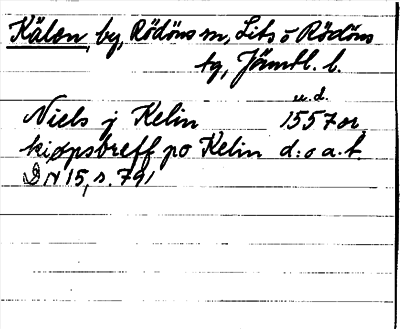 Kälen, by, Rödöns sn, Lits o Rödöns
tg, Jämtl. l.
u.d.
Niels j Kelin 1557 or
kiøpsbreff po Kelin d:o a.t.
DN 15, s. 791